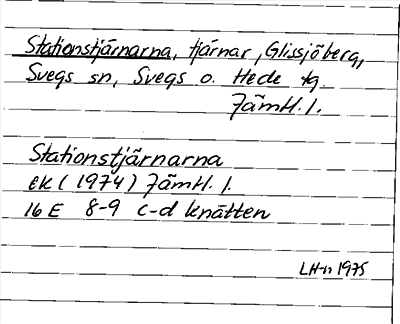 Stationstjärnarna, tjärnar, Glissjöberg,
Svegs sn, Svegs o. Hede tg.
Jämtl. l.
Stationstjärnarna
ek (1974) Jämtl. l.
16 E 8-9 c-d Knätten
LH-n 1975